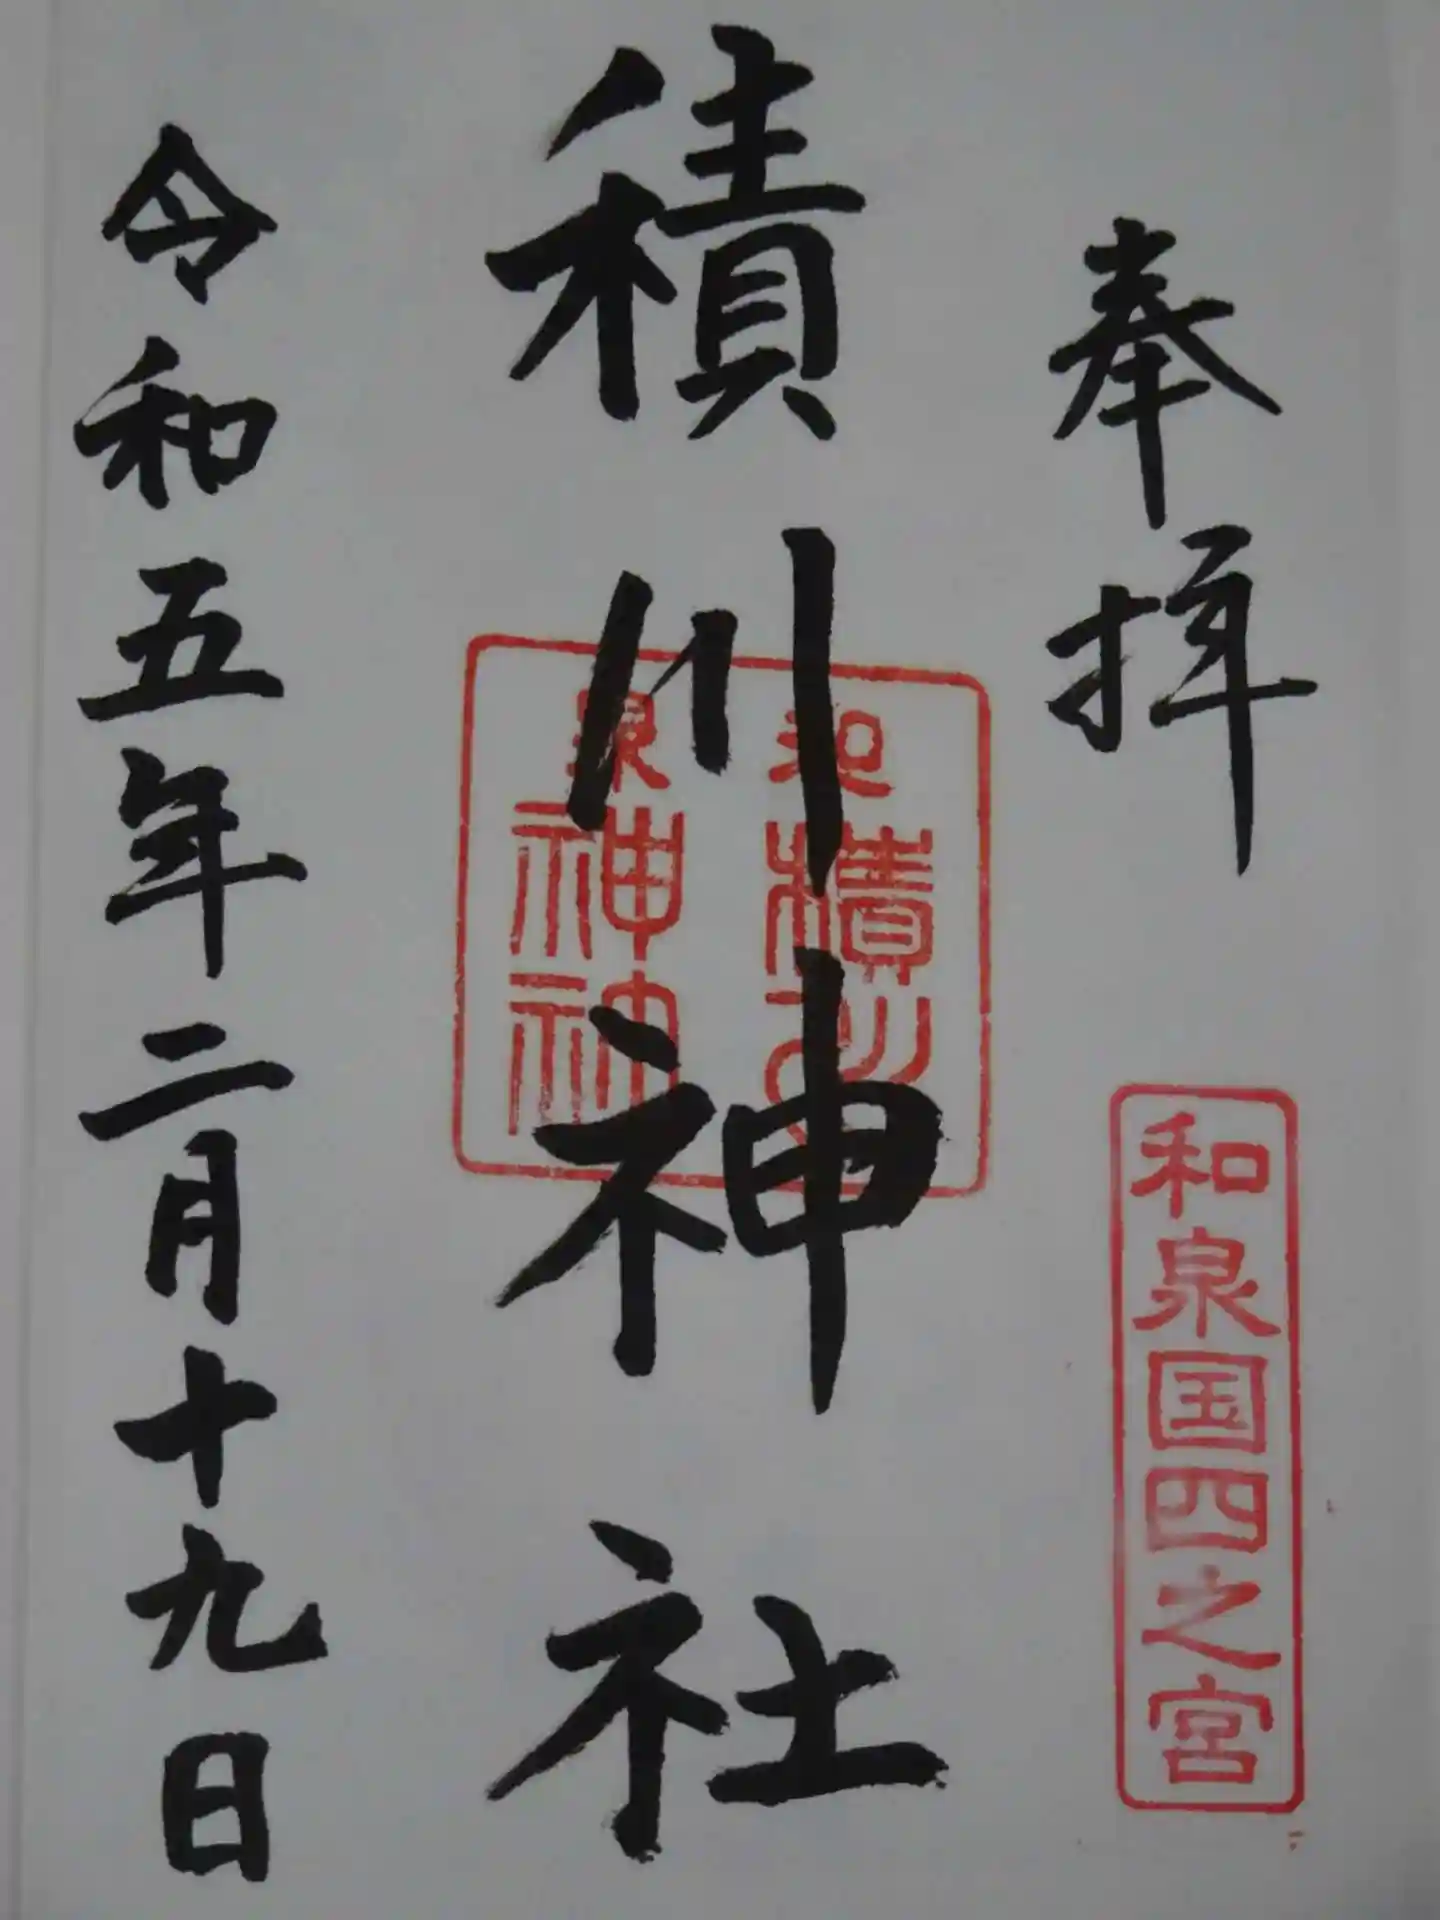 奉拝
和泉国四之宮
積川神社
令和五年二月十九日